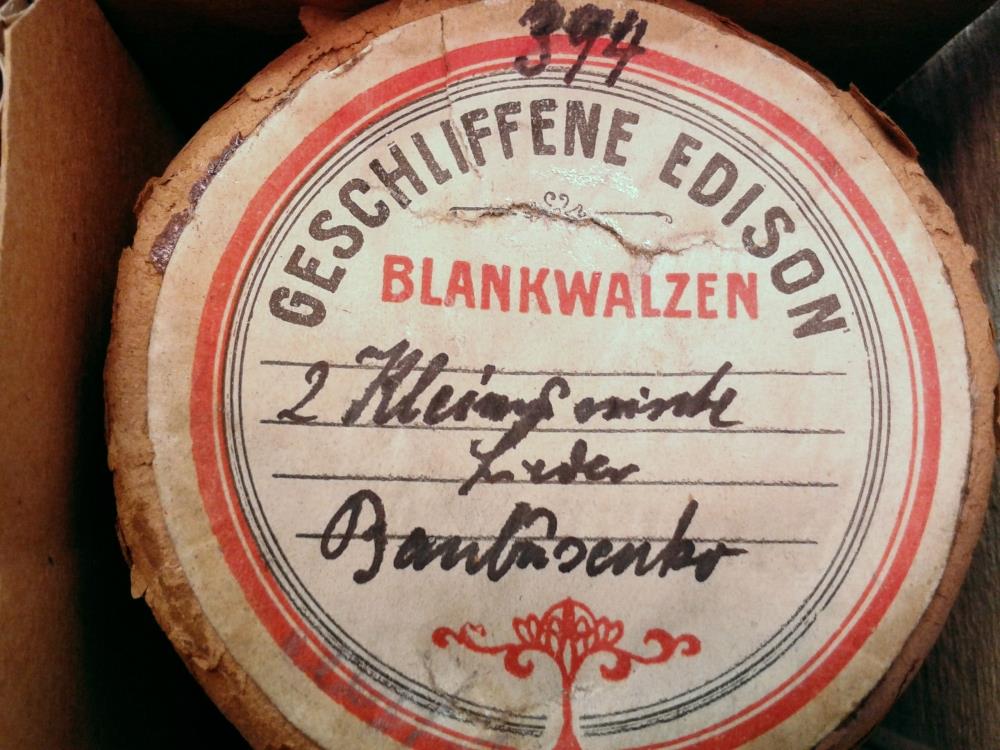 394
GESCHLIFFENE EDISON
BLANKWALZEN
2 Kleinrussische
Lieder